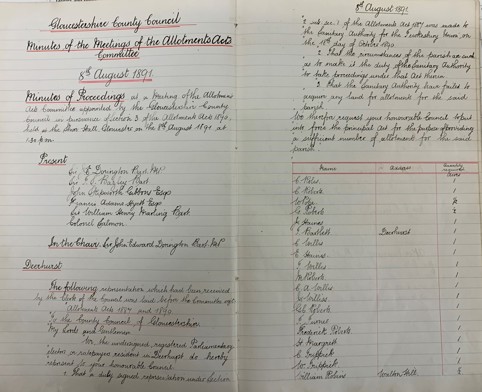 Gloucestershire County Council
Minutes of the Meetings of the Allotments Acts
Committee
8th August 1891
Minutes of Proceedings at a Meeting of the Allotments
Act Committee appointed by the Gloucestershire County
Council in pursuance of Section 3 of the Allotments Act 1890,
held at the Shire Hall, Gloucester on the 8th August 1891 at
1.30 p.m.
Present
Sir J. E. Dorington Bart, M.P.
John Stepworth Gibbons Esqr
Francis Adams Hyett Esqr
Sir William Henry Marling Bart
Colonel Salmon
In the Chair Sir John Edward Dorington Bart. M.P
Deerhurst
The following representation which had been received
by the Clerk of the Council was laid before the Committee
Allotments Acts 1887 and 1890
To the County Council of Gloucestershire
My Lords and Gentlemen
We, the undersigned, registered Parliamentary
electors or ratepayers resident in Deerhurst do hereby
represent to your honourable Council
1. That a duly signed representation under Section
8th August 1891
2 sub sec: 1 of the Allotments Act 1887 was made to
the Sanitary Authority for the Tewkesbury Union, on
the day of October 1890.
2. That the circumstances of the parish are such
as to make it the duty of the Sanitary Authority
to take proceedings under that Act therein
3. That the Sanitary Authority have failed to
acquire any land for allotments for the said
parish
We therefore request your honourable Council to put
into force the principal Act for the purpose of providing
a sufficient number of allotments for the said
parish
Name Address Quantity required
Acres
C Roberts 1
1
J Bartlett Deerhurst 1
E Willis 1
1
Willis 1
Roberts 1
C A Willis 1
Willis 1
Roberts 1
1
Frederick Roberts 1
1
1
1
William Walton Hill